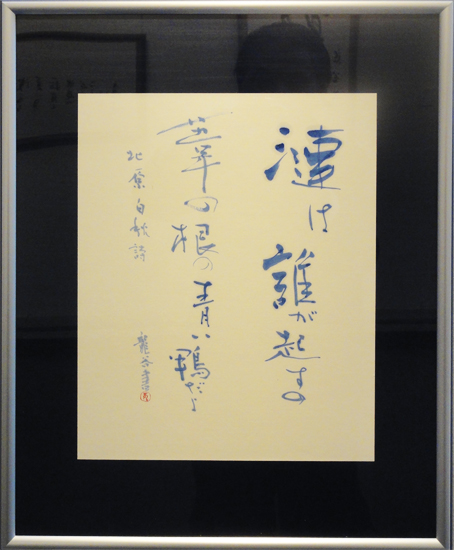 漣は誰が起すの
葦の根の青い鴨だよ
北原白秋詩